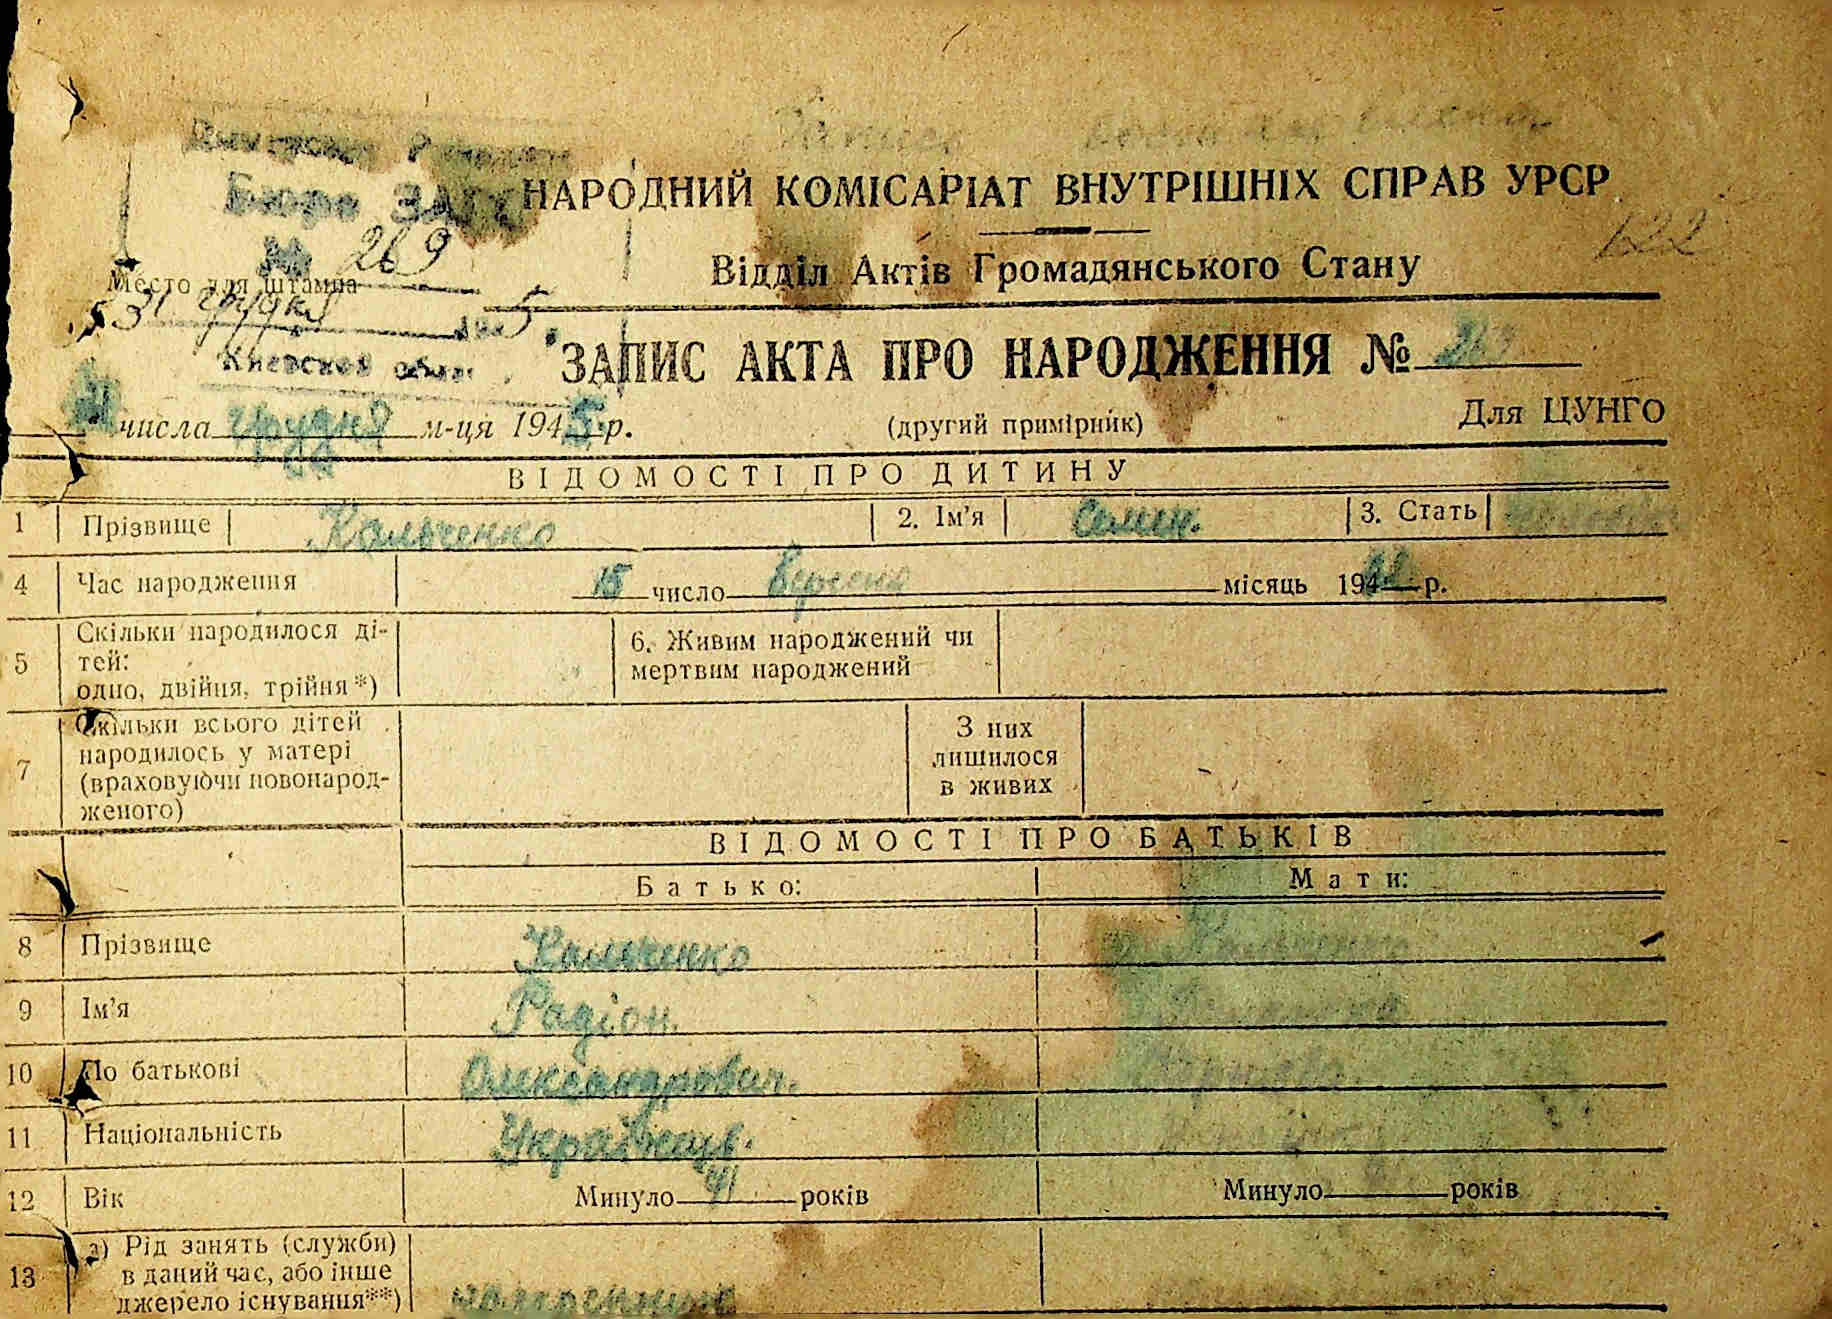 Бюро ЗАГС
НАРОДНИЙ КОМІСАРІАТ ВНУТРІШНІХ СПРАВ УРСР
№ 269
122
Відділ Актів Громадянського Стану
Место для штампа
31 грудня 1945
Киевской
ЗАПИС АКТА ПРО НАРОДЖЕННЯ № 269
31 числа грудня м-ця 1945 р.
(другий примірник)
Для ЦУНГО
ВІДОМОСТІ ПРО ДИТИНУ
1 Прізвище Кальченко 2. Ім'я Семен. 3. Стать
4 Час народження 15 число вересня місяць 194 р.
5 Скільки народилося ді-
тей:
одно, двійня, трійня*)
6. Живим народжений чи
мертвим народжений
7 Скільки всього дітей
народилось у матері
(враховуючи новонарод-
женого)
З них
лишилося
в живих
ВІДОМОСТІ ПРО БАТЬКІВ
Батько: Мати:
8 Прізвище Кальченко Кальченко
9 Ім'я Радіон.
10 По батькові Олександрович.
11 Національність Українець.
12 Вік Минуло 41 років Минуло років
13 а) Рід занять (служби)
в даний час, або інше
джерело існування**)